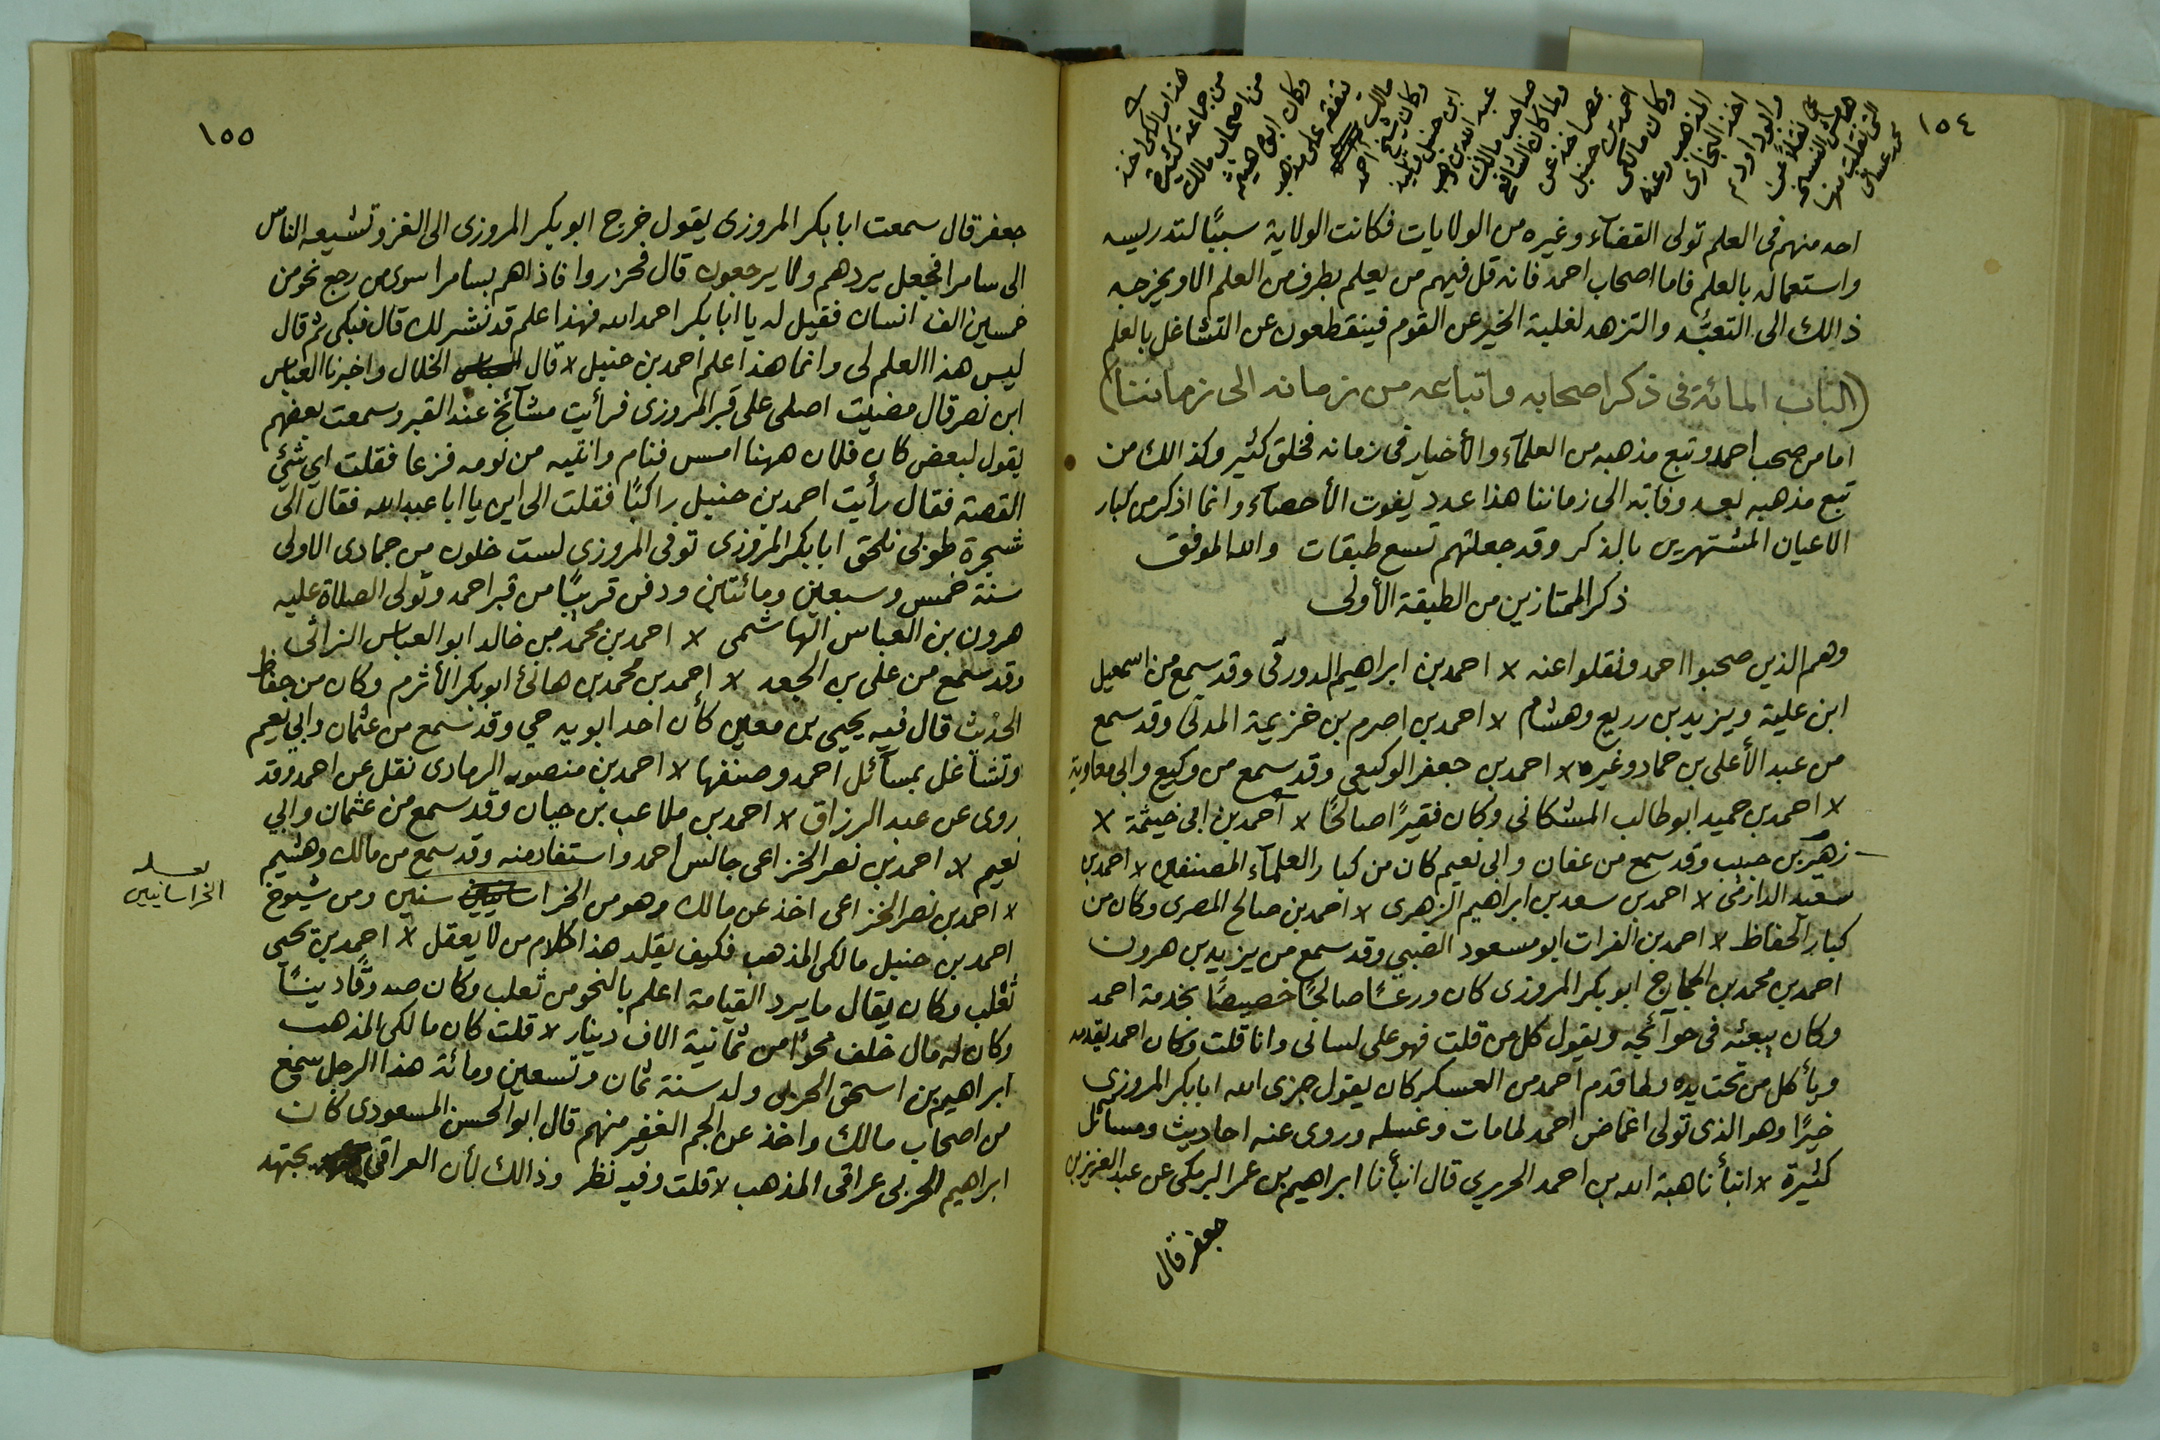 ١٥٤
هذا مالكى اخذ
من جماعة كثيرة
من اصحاب مالك
وكان ابن هيثم
يتفقه على مذهب
مالك
وكان شيخ احمد
ابن حنبل وتلميذ
عبد الله بن وهب
صاحب مالك
ولما كان الشافعى
بمصر اخذ عن
احمد بن حنبل
وكان مالكى
المذهب وعنه
اخذ البخارى
وابو داود
نقلا من
هامش النسخة
التى نقلت منها
احد منهم فى العلم تولى القضاء وغيره من الولايات فكانت الولاية سببًا لتدريسه
واستعماله بالعلم فاما اصحاب احمد فانه قل فيهم من يعلم بطرف من العلم الا ويخرجه
ذالك الى التعبد والتزهد لغلبة الخير عن القوم فينقطعون عن التشاغل بالعلم
(الباب المائة فى ذكر اصحابه واتباعه من زمانه الى زماننا)
اما من صحب احمد وتبع مذهبه من العلماء والأخيار فى زمانه فخلق كثير وكذالك من
تبع مذهبه بعد وفاته الى زماننا هذا عدد يفوت الأحصاء وانما اذكر من كبار
الاعيان المشتهرين بالذكر وقد جعلتهم تسع طبقات والله الموفق
ذكر الممتازين من الطبقة الأولى
وهم الذين صحبوا احمد ونقلوا عنه ٪ احمد بن ابراهيم الدورقى وقد سمع من اسمعيل
ابن علية ويزيد بن زريع وهشام ٪ احمد بن اصرم بن خزيمة المدنى وقد سمع
من عبد الأعلى بن حماد وغيره ٪ احمد بن جعفر الوكيعى وقد سمع من وكيع وابى معاوية
٪ احمد بن حميد ابو طالب المشكانى وكان فقيرًا صالحًا ٪ احمد بن ابى خيثمة ٪
زهير بن حبيب وقد سمع من عفان وابى نعيم كان من كبار العلماء المصنفين ٪ احمد بن
سعيد الدارمى ٪ احمد بن سعد بن ابراهيم الزهرى ٪ احمد بن صالح المصرى وكان من
كبار الحفاظ ٪ احمد بن الفرات ابو مسعود الضبى وقد سمع من يزيد بن هرون
احمد بن محمد بن الحجاج ابو بكر المروزى كان ورعًا صالحًا خصيصًا بخدمة احمد
وكان يبعثه فى حوائجه ويقول كل من قلت فهو على لسانى وانا قلت وكان احمد يقدمه
ويأكل من تحت يده ولما قدم احمد من العسكر كان يقول جزى الله ابا بكر المروزى
خيرًا وهو الذى تولى اغماض احمد لما مات وغسله وروى عنه احاديث ومسائل
كثيرة ٪ انبأنا هبة الله بن احمد الحريرى قال انبأنا ابراهيم بن عمر البرمكى عن عبد العزيز بن
جعفر قال
١٥٥
جعفر قال سمعت ابا بكر المروزى يقول خرج ابو بكر المروزى الى الغزو تشيعه الناس
الى سامرا فجعل يردهم ولا يرجعون قال فحزروا فاذا هم بسامرا سوى من رجع نحو من
خمسين الف انسان فقيل له يا ابا بكر احمد الله فهذا علم قد نشر لك قال فبكى ثم قال
ليس هذا العلم لى وانما هذا علم احمد بن حنبل ٪ قال الخلال واخبرنا العباس
ابن نصر قال مضيت اصلى على قبر المروزى فرأيت مشائخ عند القبر وسمعت بعضهم
يقول لبعض كان فلان ههنا امس فنام وانتبه من نومه فزعا فقلت اى شئ
القصة فقال رأيت احمد بن حنبل راكبًا فقلت الى اين يا ابا عبد الله فقال الى
شجرة طوبى نلحق ابا بكر المروزى توفى المروزى لست خلون من جمادى الاولى
سنة خمس وسبعين ومائتين ودفن قريبًا من قبر احمد وتولى الصلاة عليه
هرون بن العباس الهاشمى ٪ احمد بن محمد بن خالد ابو العباس البراثى
وقد سمع من على بن الجعد ٪ احمد بن محمد بن هانئ ابو بكر الأثرم وكان من حفاظ
الحديث قال فيه يحيى بن معين كأن احد ابويه جى وقد سمع من عثمان وابى نعيم
وتشاغل بمسائل احمد وصنفها ٪ احمد بن منصور الرمادى نقل عن احمد وقد
روى عن عبد الرزاق ٪ احمد بن ملاعب بن حيان وقد سمع من عثمان وابى
نعيم ٪ احمد بن نصر الخزاعى جالس احمد واستفاد منه وقد سمع من مالك وهشيم
٪ احمد بن نصر الخزاعى اخذ عن مالك وهو من الخراسانيين سنين ومن شيوخ
لعله
الخراسانيين
احمد بن حنبل مالكى المذهب فكيف يقلد هذا كلام من لا يعقل ٪ احمد بن يحيى
ثعلب وكان يقال ما يرد القيامة اعلم بالنحو من ثعلب وكان صدوقًا دينًا
وكان له مال خلف نحوًا من ثمانية الاف دينار ٪ قلت كان مالكى المذهب
ابراهيم بن اسحق الحربى ولد سنة ثمان وتسعين ومائة هذا الرجل سمع
من اصحاب مالك واخذ عن الجم الغفير منهم قال ابو الحسن المسعودى كان
ابراهيم الحربى عراقى المذهب ٪ قلت وفيه نظر وذالك لأن العراقى يجتهد